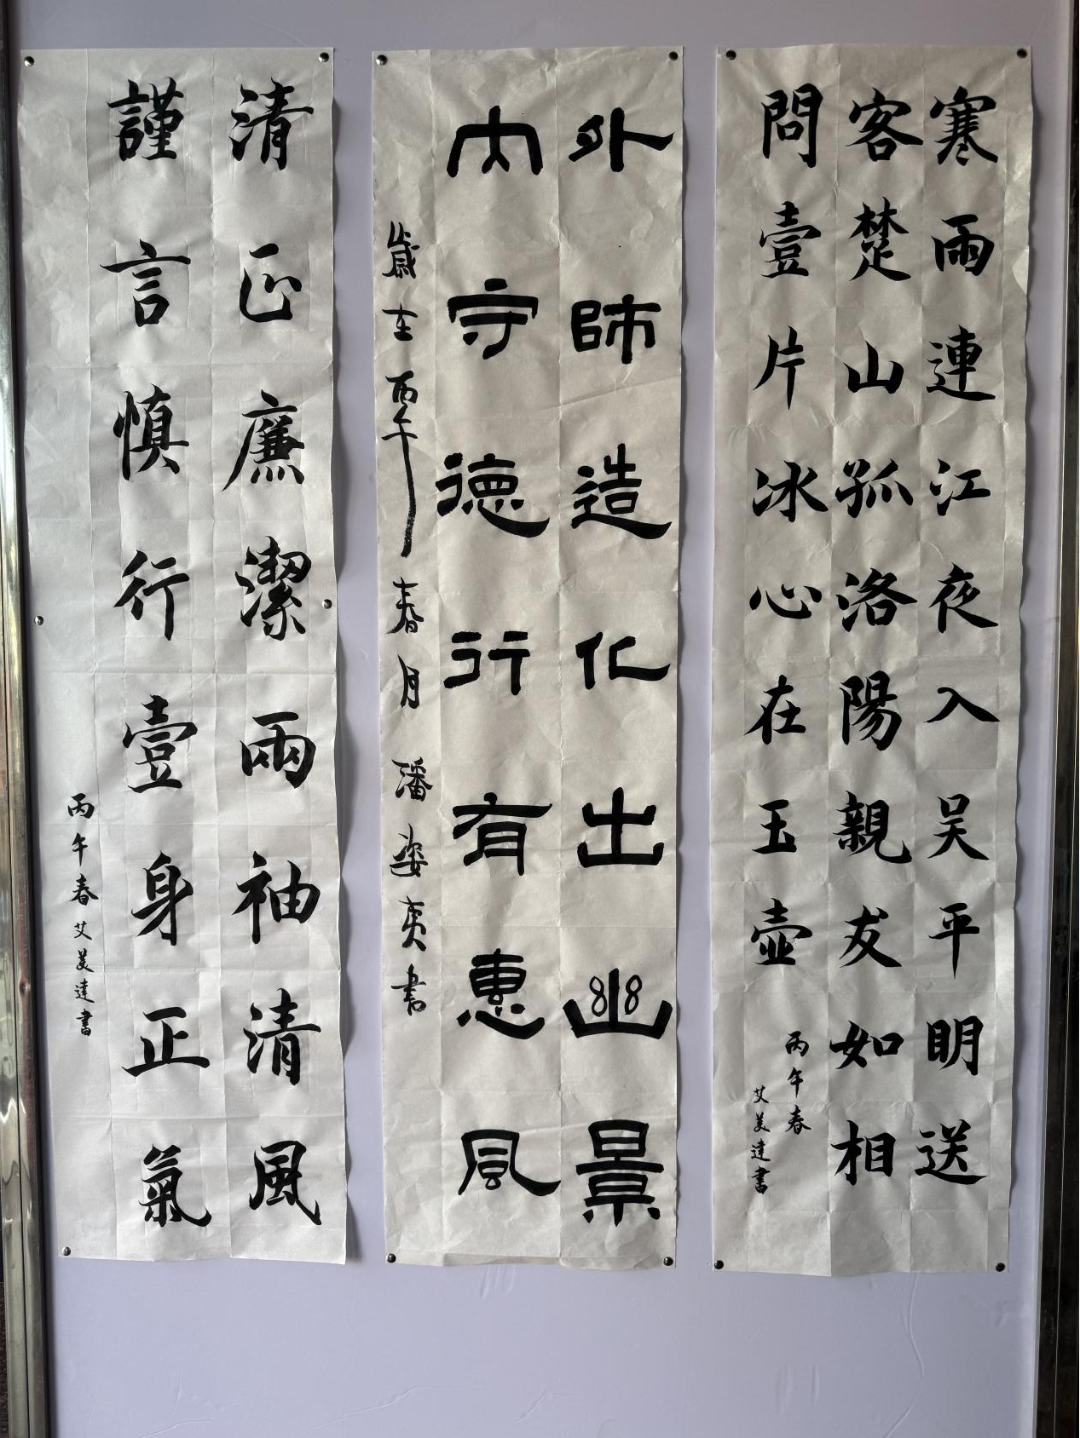 寒雨連江夜入吴平明送
客楚山孤洛陽親友如相
問壹片冰心在玉壺
丙午春
艾美達書
外師造化出幽景
内守德行有惠風
歲在丙午春月 潘姿夷書
清正廉潔兩袖清風
謹言慎行壹身正氣
丙午春艾美達書